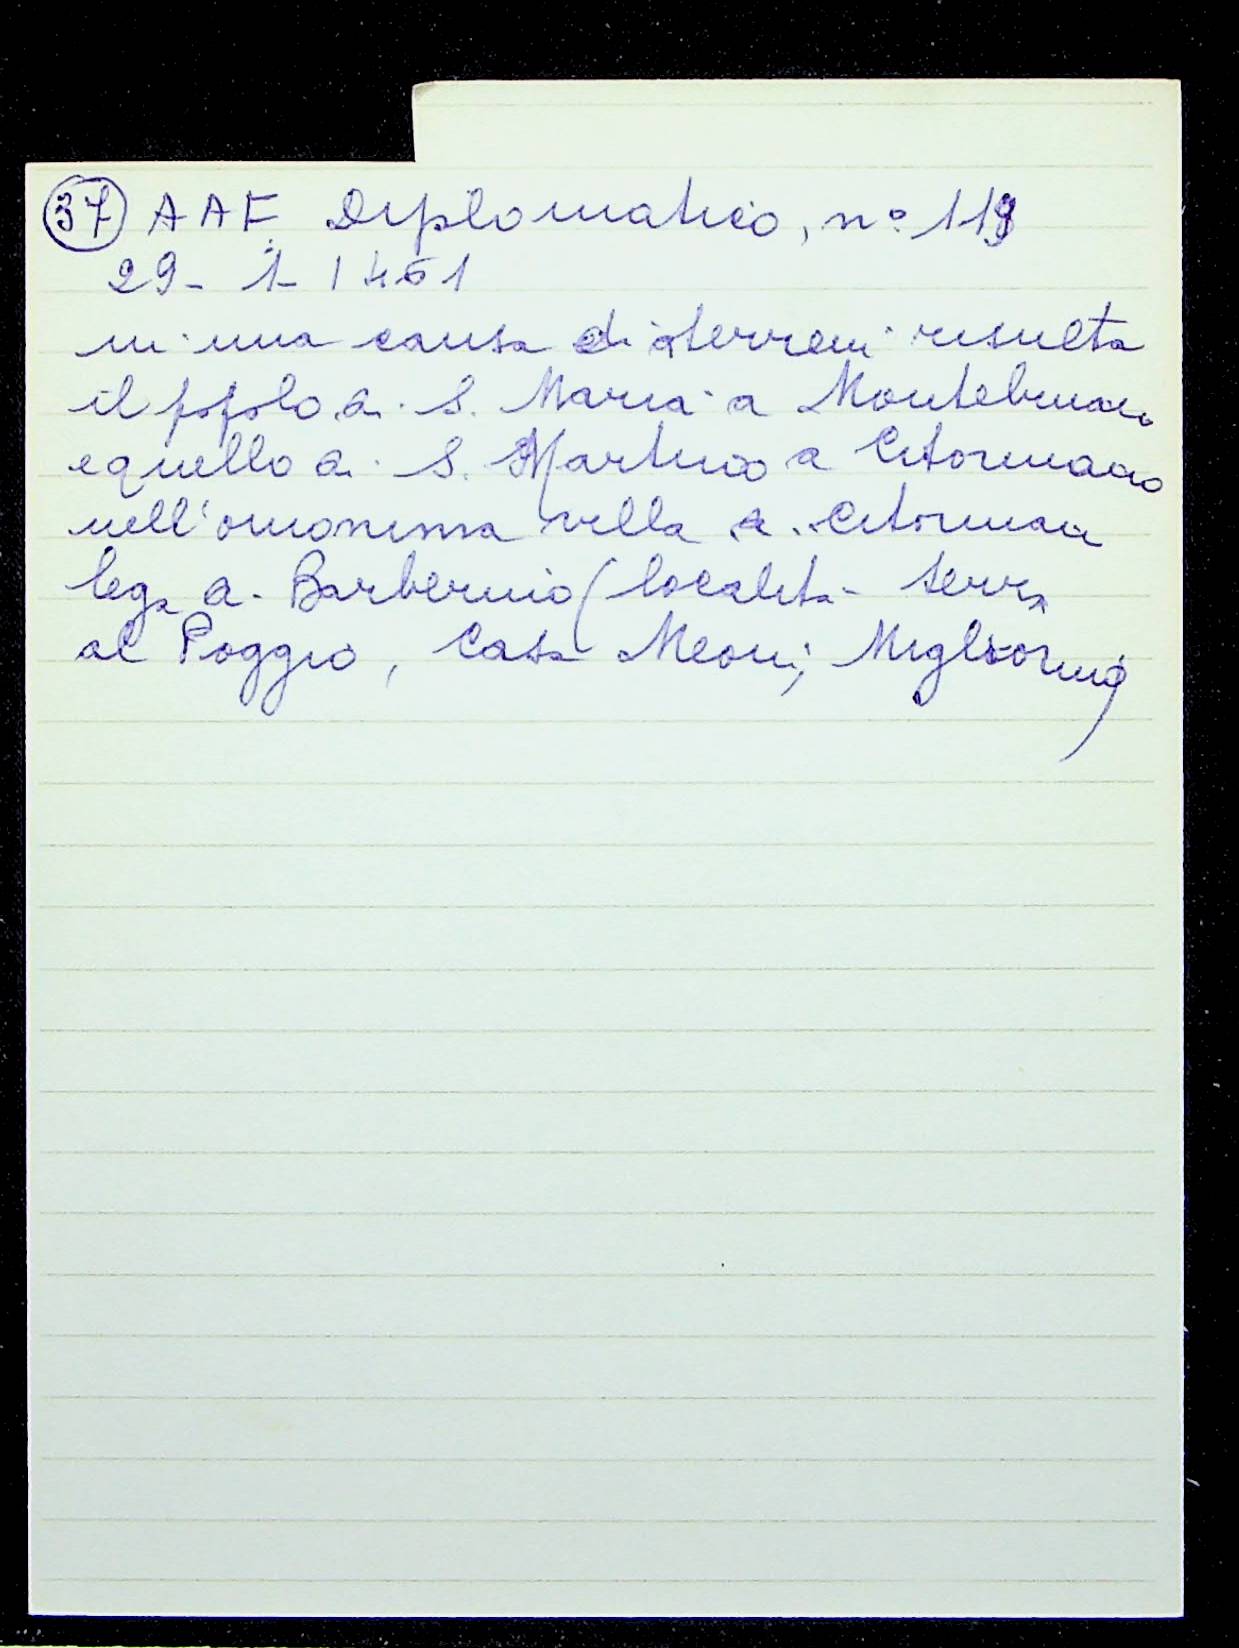 37 AAF Diplomatico, n° 119
29-1-1461
in una causa di terreni risulta
il popolo di S. Maria a Montebuiano
e quello di S. Martino a Citornano
nell'omonima villa di Citornan
lega di Barberino (località terra
al Poggio, Casa Meoni, Migliorino)